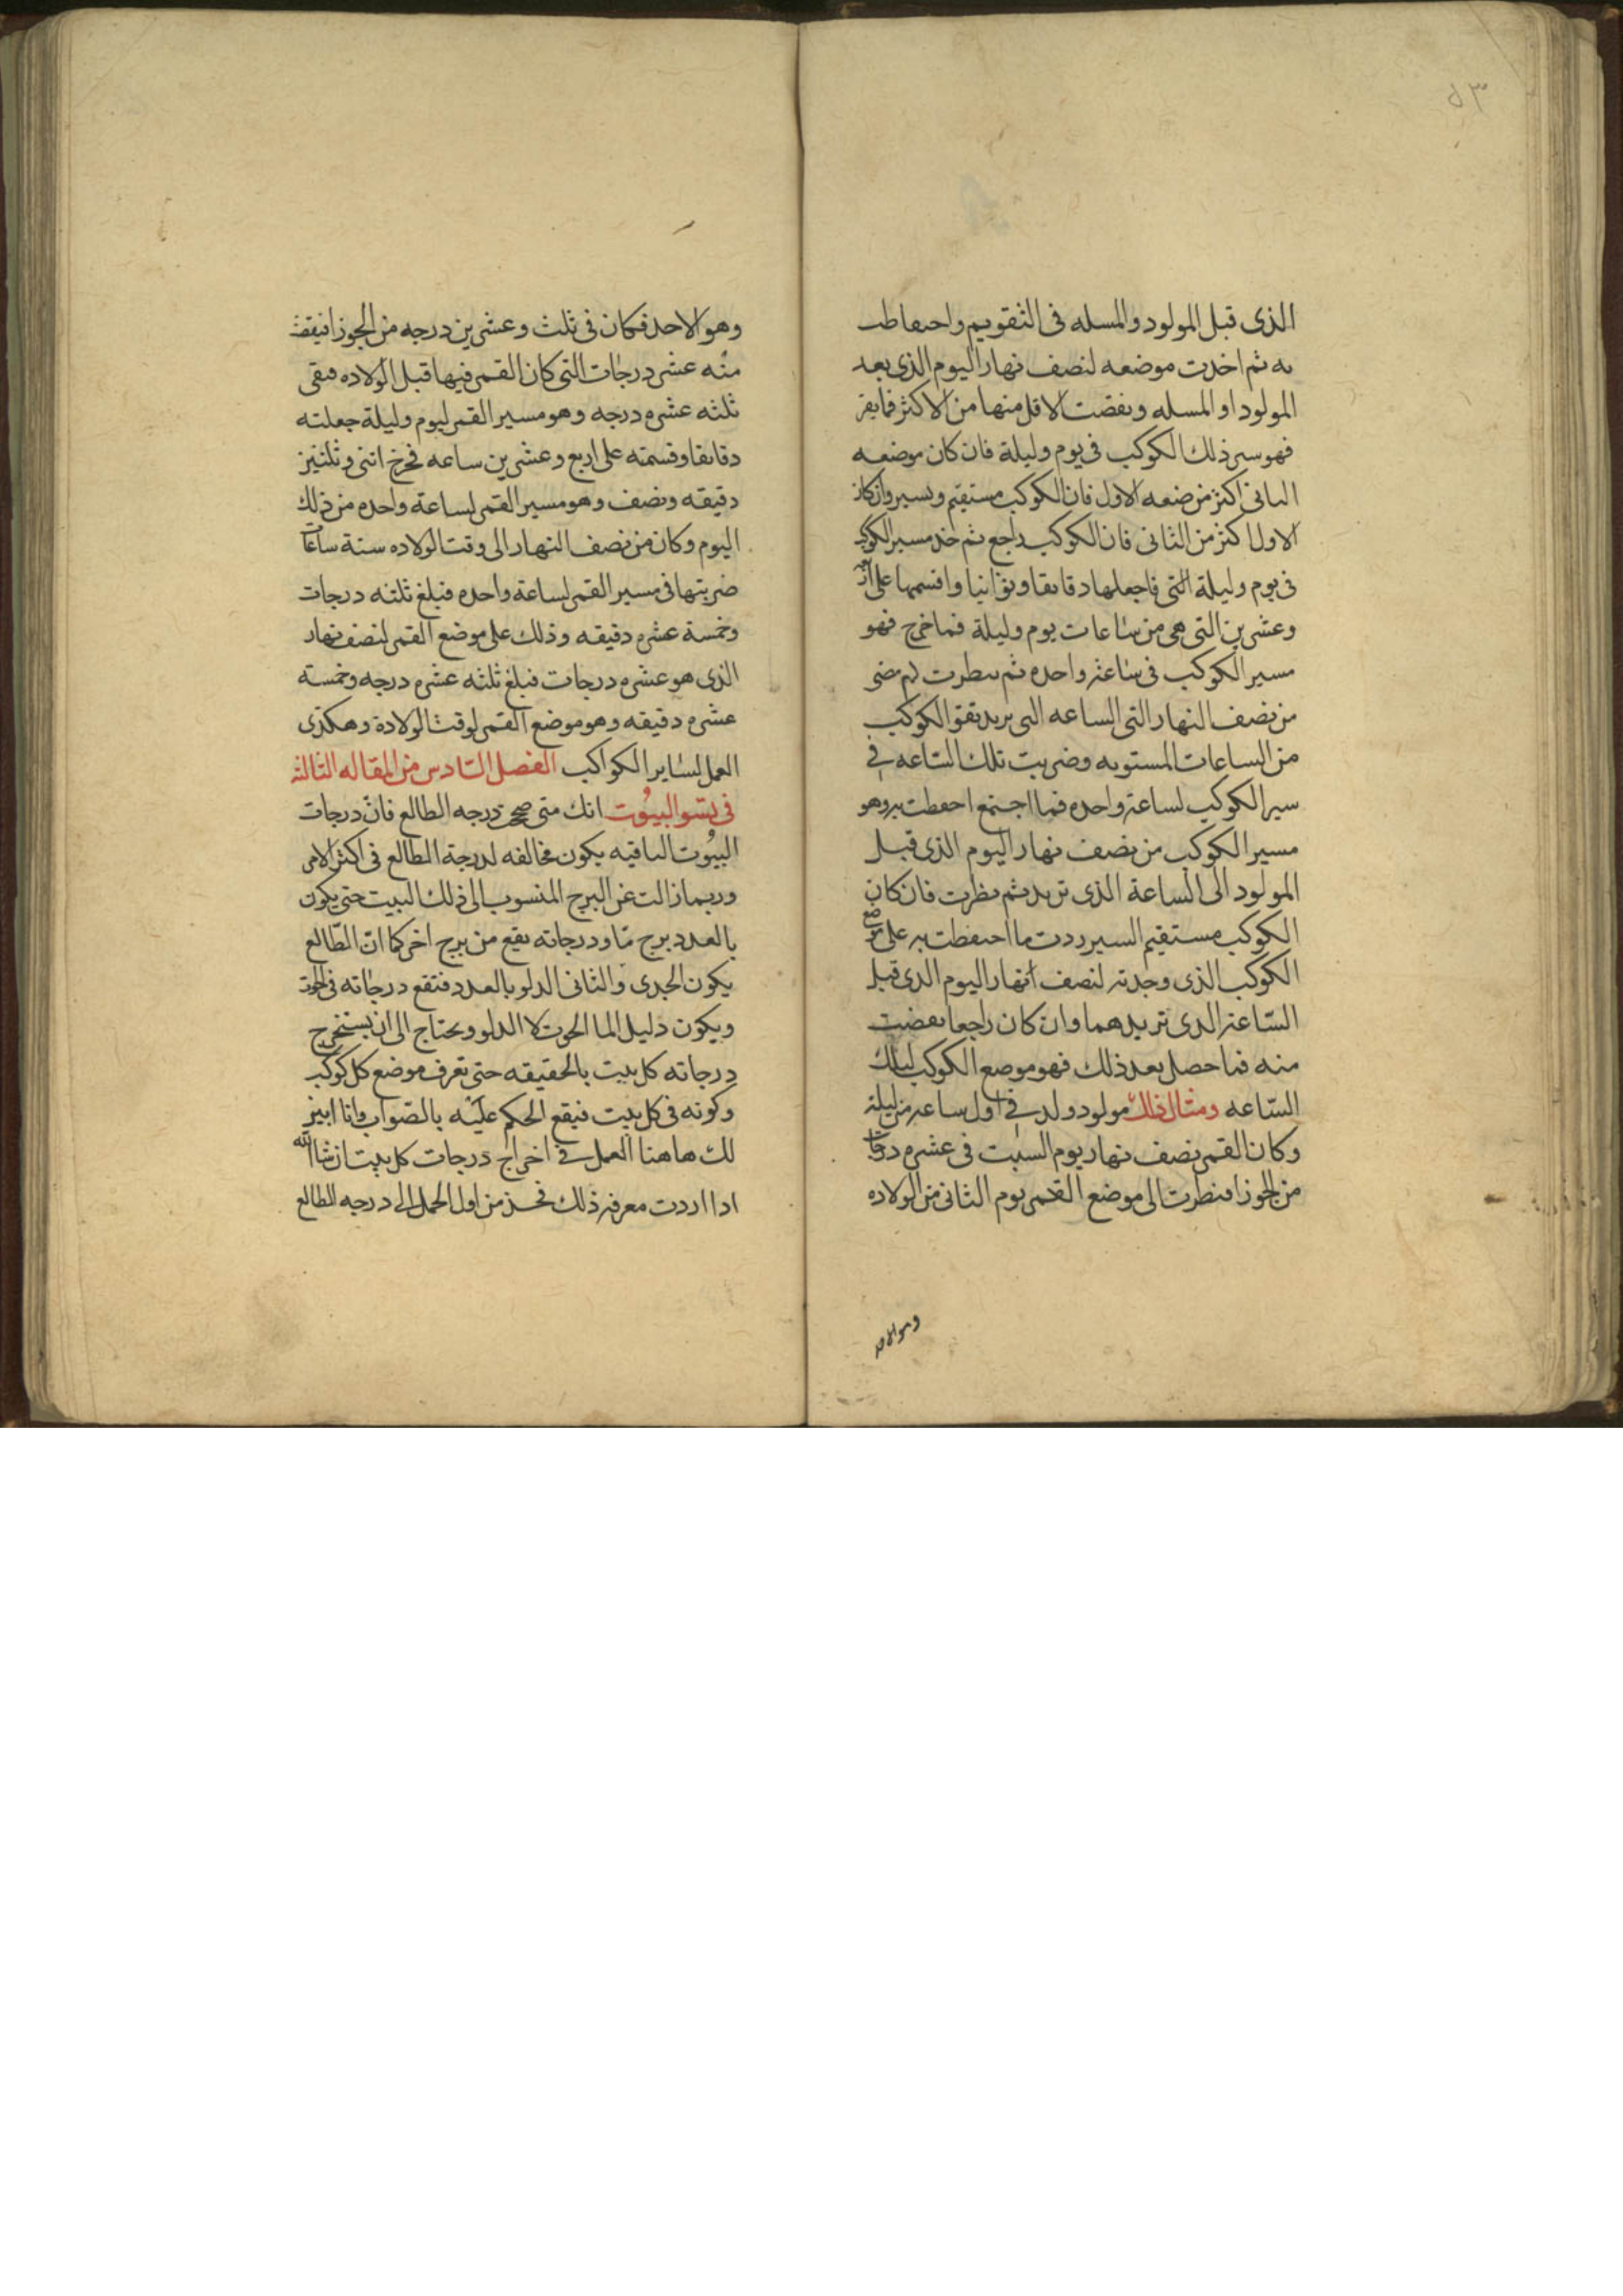 ٥٣
الذى قبل المولود والمسله فى التقويم واحتفاطت
به ثم اخذت موضعه لنصف نهار اليوم الذى بعد
المولود او المسله ونقصت الاقل منها من الاكثر فما بقى
فهو سير ذلك الكوكب فى يوم وليلة فان كان موضعه
الثانى اكثر من ضعه الاول فان الكوكب مستقيم وسير وان كان
الاول اكثر من الثانى فان الكوكب راجع ثم خذ مسير الكوكب
فى يوم وليلة التى فاجعلها دقايقا وثوانيا واقسمها على اربعه
وعشرين التى هى من ساعات يوم وليلة فما خرج فهو
مسير الكوكب فى ساعة واحده ثم نظرت لم مضى
من نصف النهار التى الساعه التى تريد تقو الكوكب
من الساعات المستويه وضربت تلك الساعه فى
سير الكوكب لساعة واحده فما اجتمع احفظت به وهو
مسير الكوكب من نصف نهار اليوم الذى قبل
المولود الى الساعة الذى تريد ثم نظرت فان كان
الكوكب مستقيم السير ردت ما احتفظت به على موضع
الكوكب الذى وجدته لنصف انهار اليوم الذى قبل
الساعة الذى تريدهما وان كان راجعا نقصت
منه فما حصل بعد ذلك فهو موضع الكوكب لتلك
الساعه ومثال ذلك مولود ولد فى اول ساعه من ليلة
وكان القمر نصف نهار يوم السبت فى عشره درجات
من الجوزا فنظرت الى موضع القمر يوم الثانى من الولاده
وهو الاحد
وهو الاحد فكان فى ثلث وعشرين درجه من الجوزا فنقصت
منه عشر درجات التى كان القمر فيها قبل الولاده فبقى
ثلثه عشره درجه وهو مسير القمر ليوم وليلة جعلته
دقايقا وقسمته على اربع وعشرين ساعه فخرج اثنى وثلثين
دقيقه ونصف وهو مسير القمر لساعة واحده من ذلك
اليوم وكان من نصف النهار الى وقت الولاده ستة ساعات
ضربتها فى مسير القمر لساعة واحده فبلغ ثلثه درجات
وخمسة عشره دقيقه وذلك على موضع القمر لنصف نهار
الذى هو عشره درجات فبلغ ثلثه عشره درجه وخمسة
عشره دقيقه وهو موضع القمر لوقت الولادة وهكذى
العمل لساير الكواكب الفصل السادس من المقاله الثالثه
فى تسو البيوت انك متى صححت درجه الطالع فان درجات
البيوت الباقيه يكون مخالفه لدرجة الطالع فى اكثر الامر
وربما زالت عن البرج المنسوب الى ذلك البيت حتى يكون
بالعدد برج ما ودرجاته يقع من برج اخر كما ان الطالع
يكون الجدى والثانى الدلو بالعدد فتقع درجاته فى الحوت
ويكون دليل الما الحوت لا الدلو ويحتاج الى ان يستخرج
درجاته كل بيت بالحقيقه حتى تعرف موضع كل كوكب
وكونه فى كل بيت فيقع الحكم عليه بالصواب وانا ابين
لك هاهنا العمل فى اخراج درجات كل بيت ان شا الله
اذا اردت معرفة ذلك فخذ من اول الحمل الى درجه الطالع